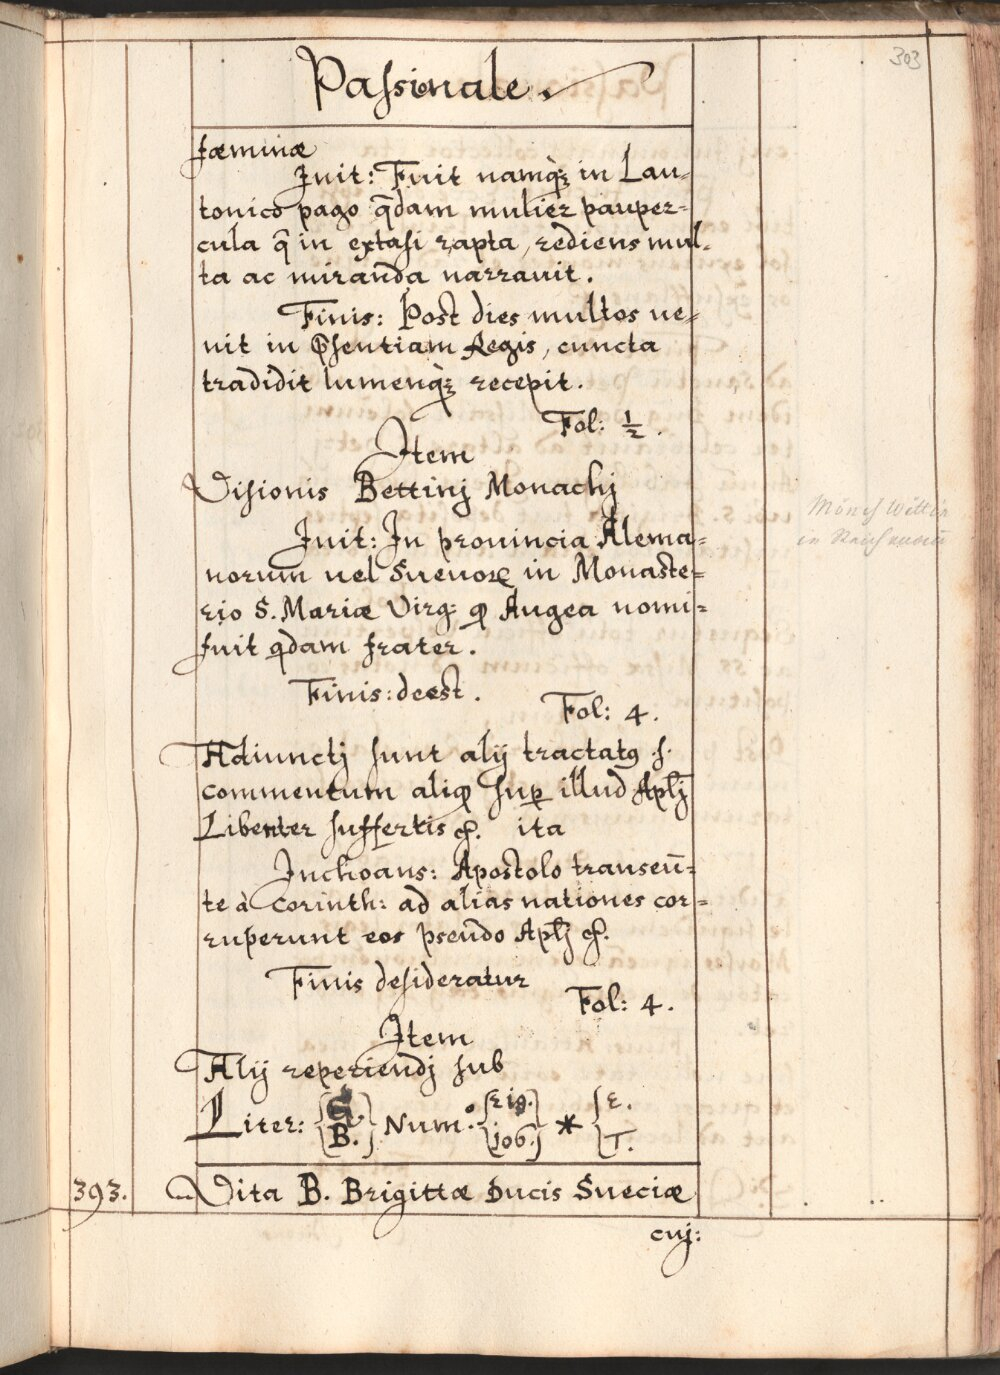 303
Passionale.
fæminæ
Init: Fuit namq̀ꝫ in Lau-
tonico pago q̄dam mulier pauper-
cula q̄ in extasi rapta, rediens mul-
ta ac miranda narrauit.
Finis: Post dies multos ue-
nit in p̄sentiam Regis, cuncta
tradidit lumenq̀ꝫ recepit.
Fol: ½.
Item
Visionis Bettinj Monachj
Init: In prouincia Alema-
norum uel Sueuoꝝ in Monaste-
rio S. Mariæ Virg: qͩ Augea nomi-
fuit qdam frater.
Finis: deest.
Fol: 4.
Adiunctj sunt alij tractatꝰ .s.
commentum aliqͩ sup̱ illud Aplj̄
Libenter suffertis ꝛc. ita
Inchoans: Apostolo transeū-
te à Corinth: ad alias nationes cor-
ruperunt eos pseudo Aplj̄ ꝛc.
Finis desideratur
Fol: 4.
Item
Alij reperiendj sub
Liter: {G. B.} Num.° { 106.} * {E. T.
393. Vita B. Brigittæ Ducis Sueciæ
cuj:
Mönch Wettin
in Reichenau